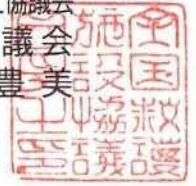 協議会
議会
豊美
全国救護
施設協議
会会長之印